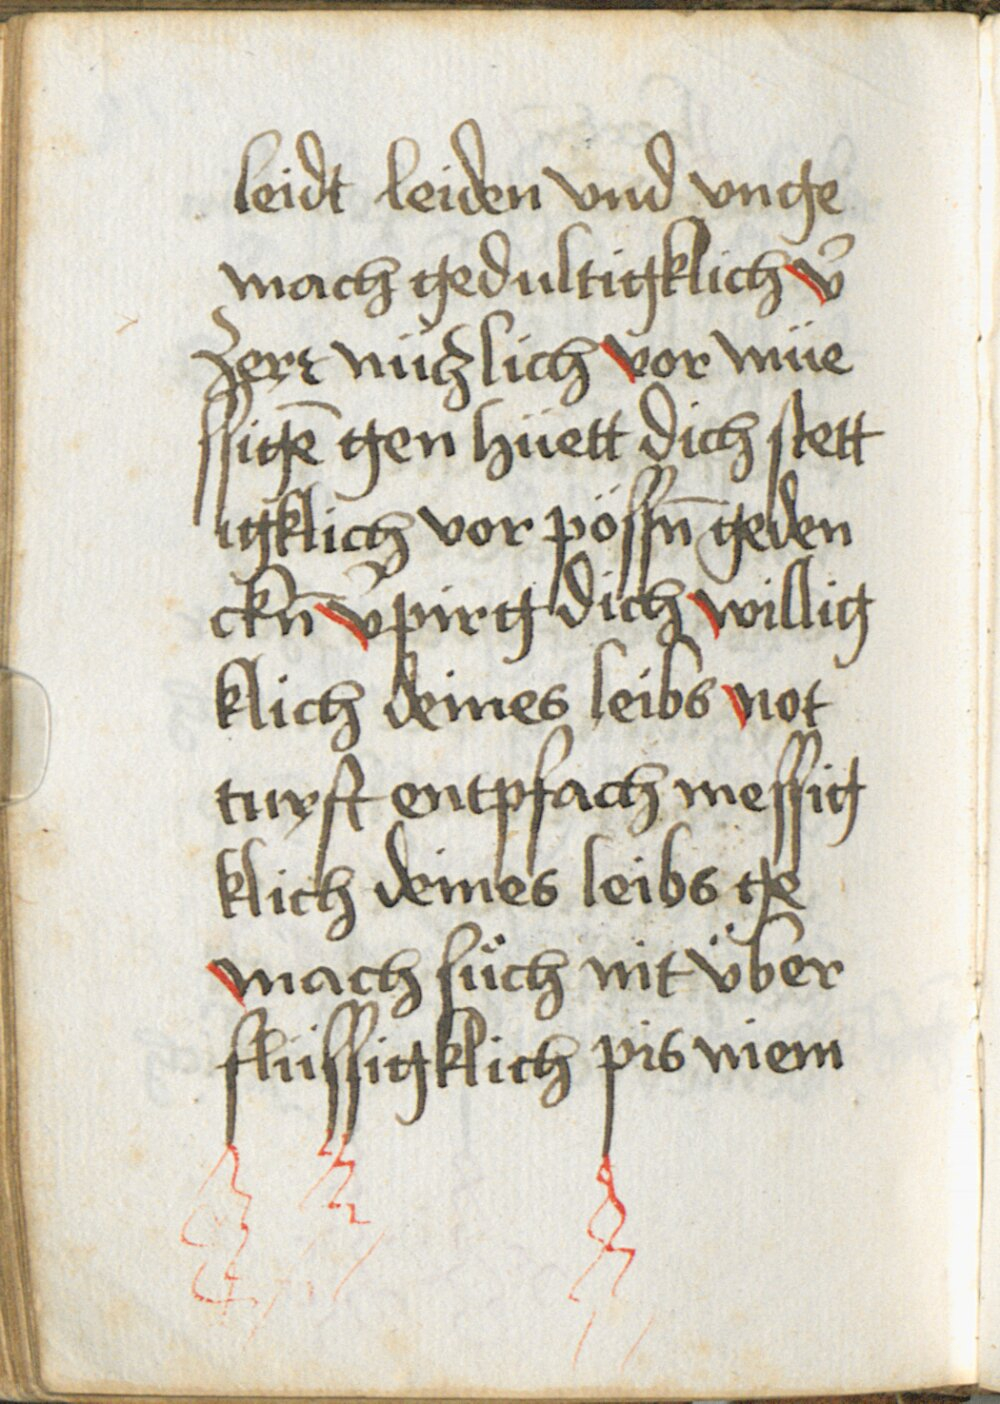 leidt leiden vnd vnge
mach gedultigklich v̄
Zert nüczlich vor müe
ssigē gen hüett dich stett
igklich vor pössn̄ geden
ckn̄ v̄pirg dich willig
klich deines leibs not
turft entpfach messig
klich deines leibs ge
mach süch nit v̈ber
flüssigklich pis niem